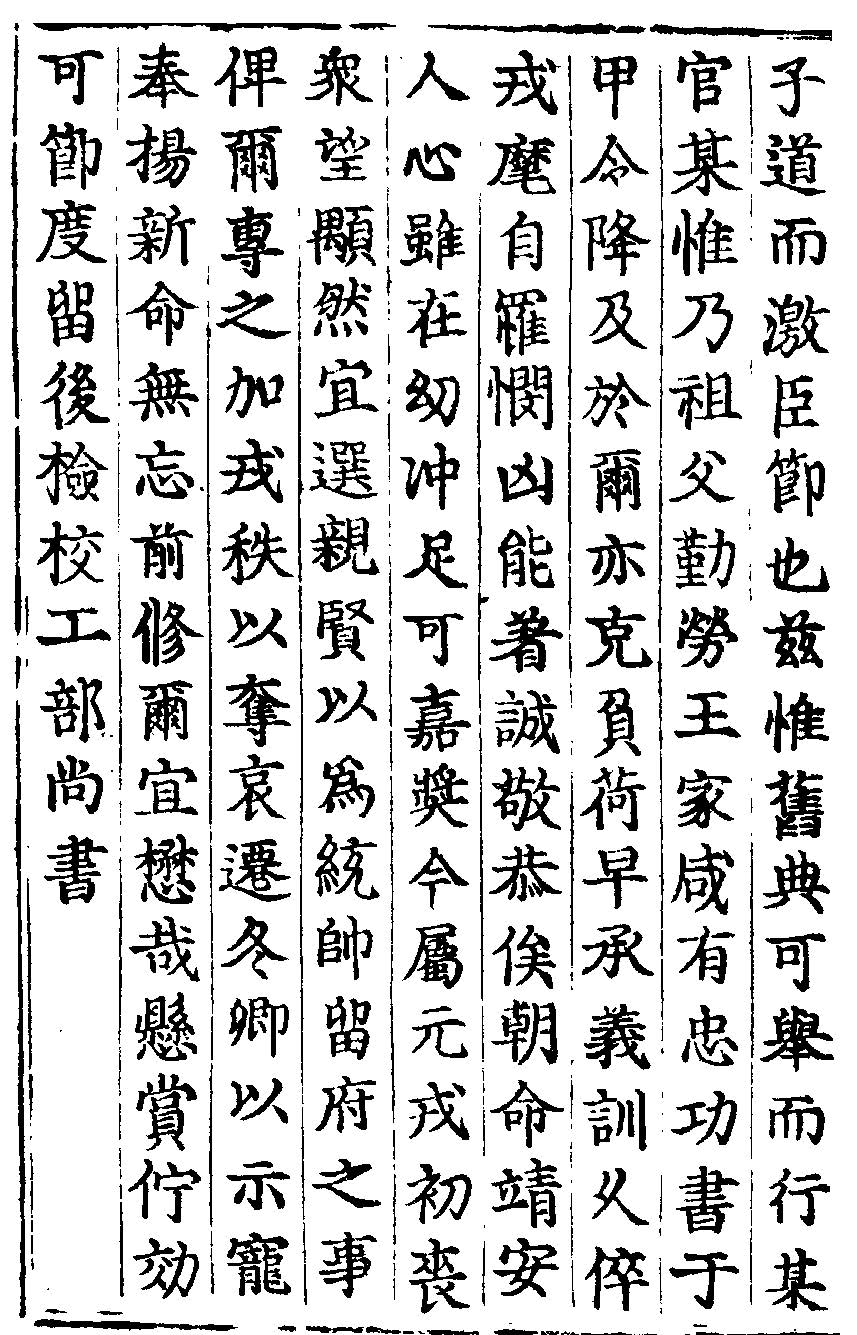 子道而激臣節也兹惟舊典可舉而行某
官某惟乃祖父勤勞王家咸有忠功書于
甲令降及於爾亦克負荷早承義訓久倅
戎麾自罹憫凶能著誠敬恭俟朝命靖安
人心雖在幼冲足可嘉奬今屬元戎初喪
衆望顒然宜選親賢以爲統帥留府之事
俾爾專之加戎秩以奪哀遷冬卿以示寵
奉揚新命無忘前修爾宜懋哉懸賞佇効
可節度留後檢校工部尚書